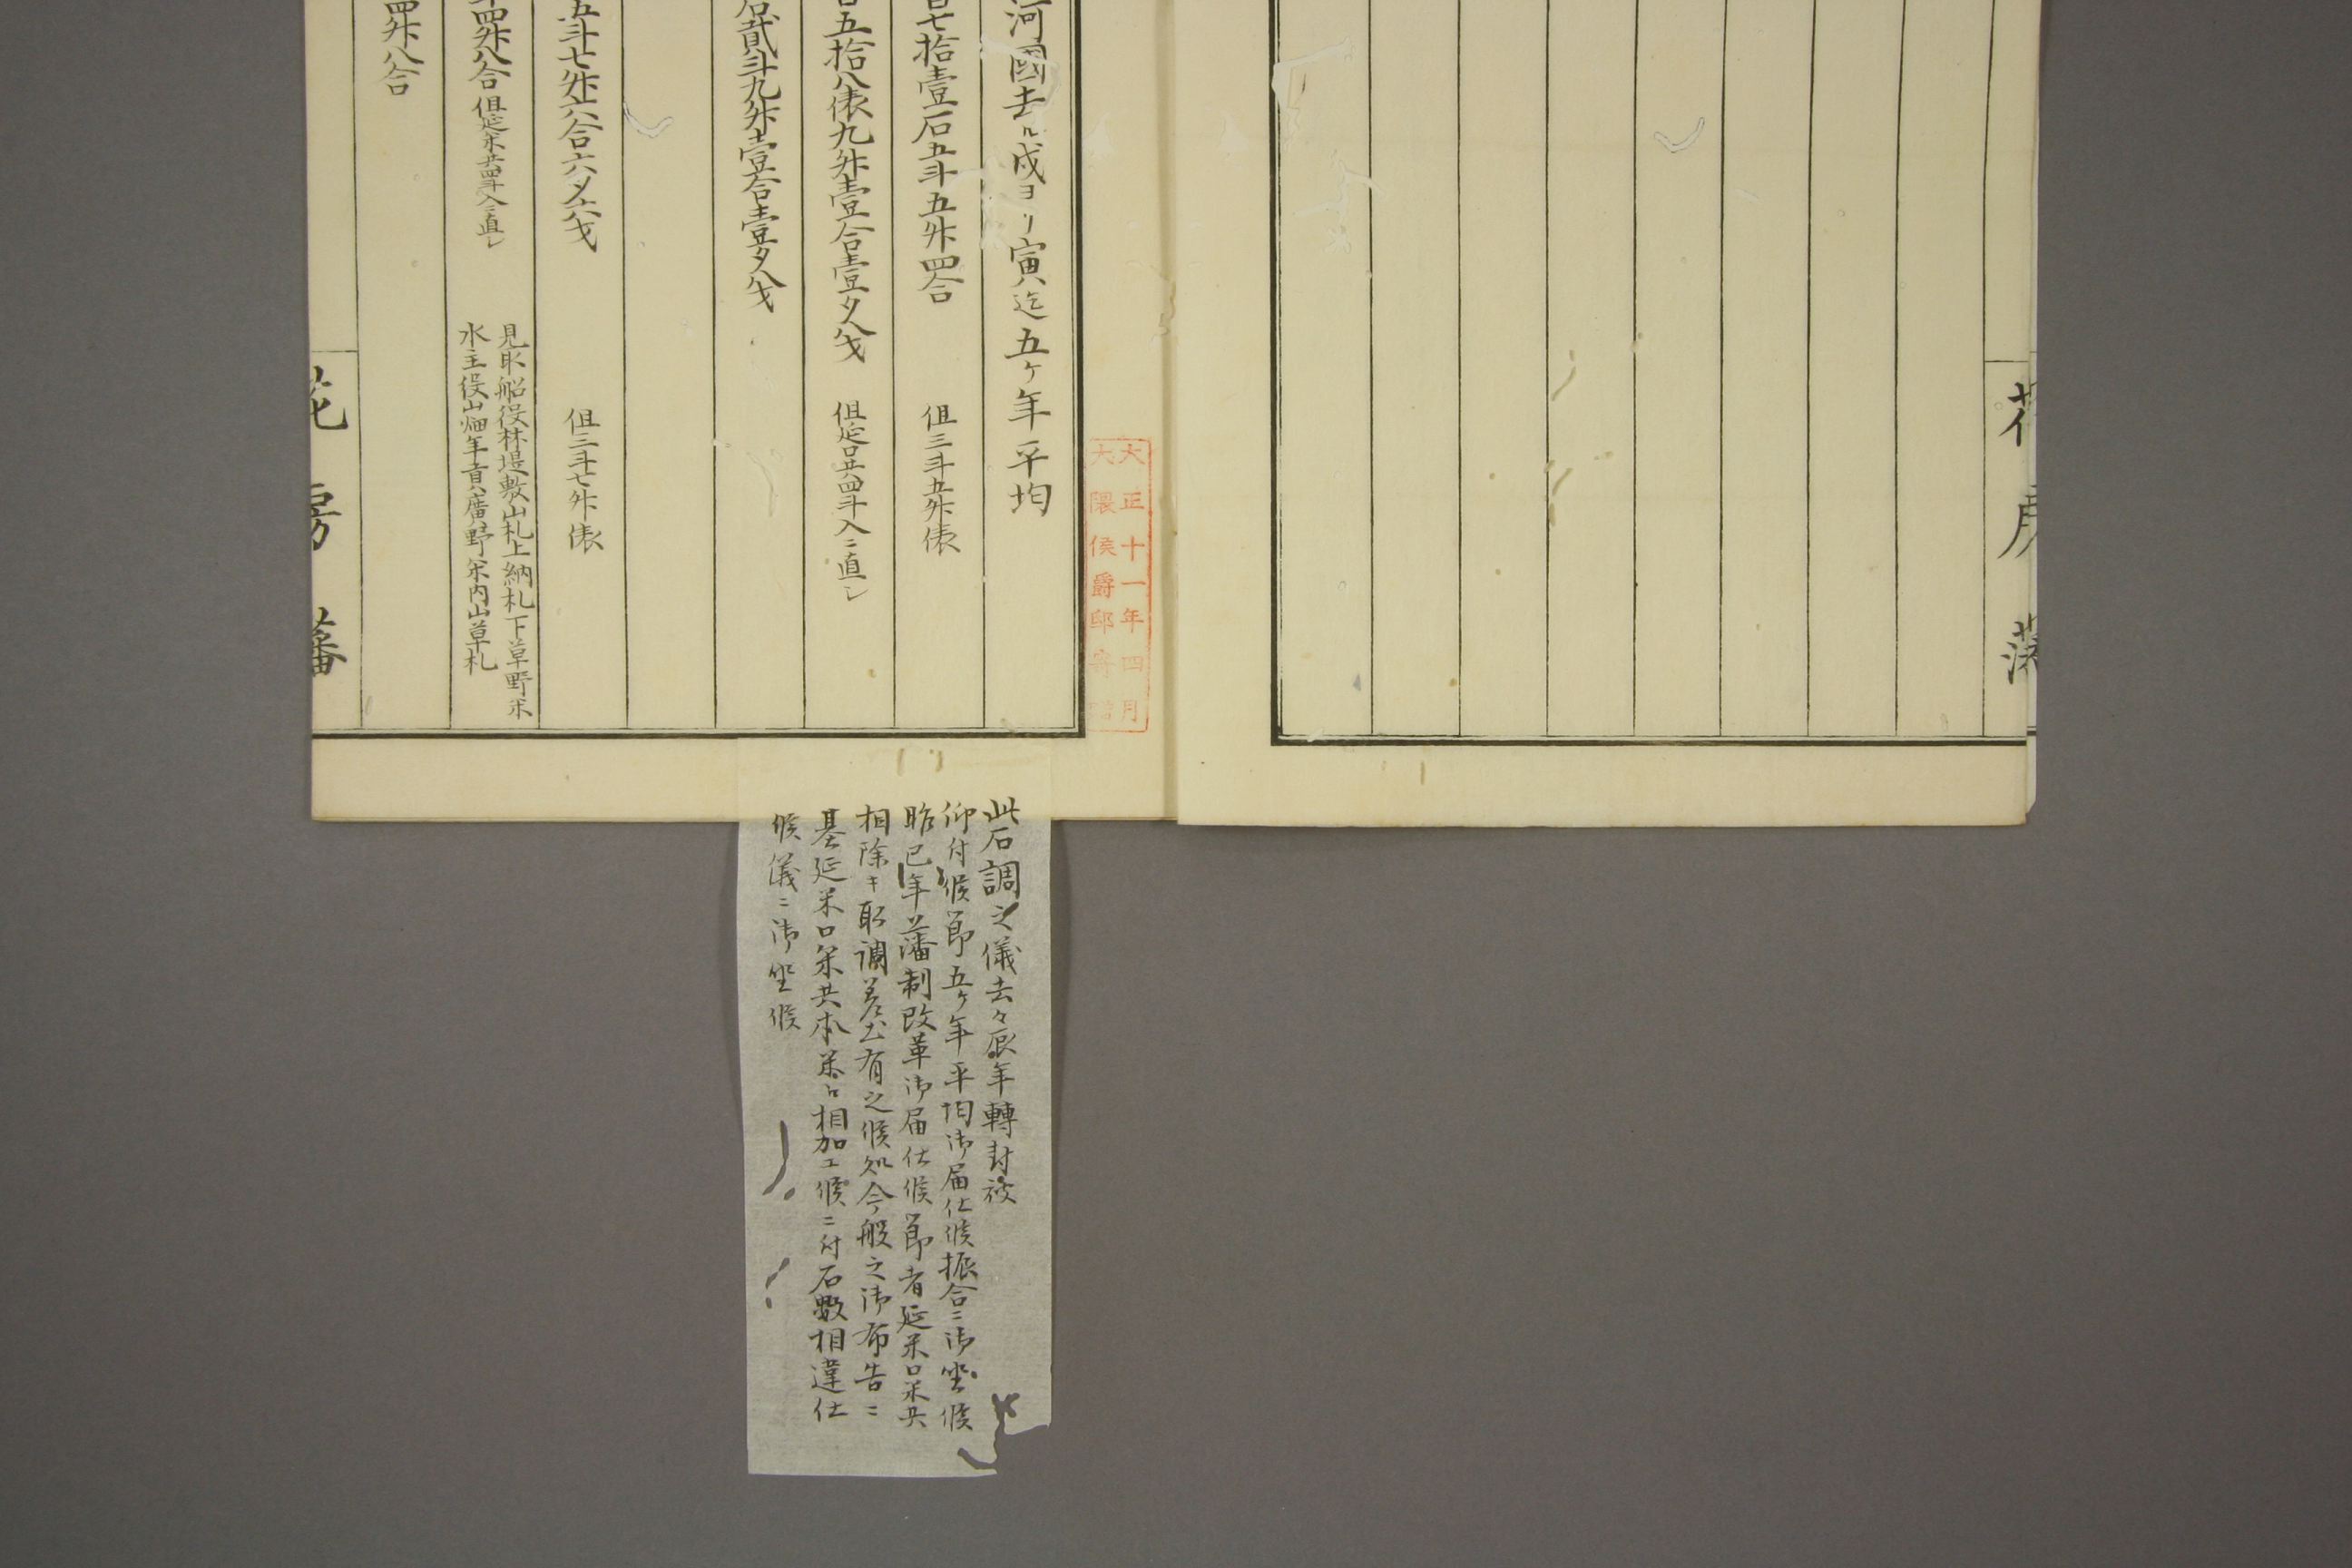 花房藩
大正十一年四月
大隈侯爵邸寄贈
河國去ル戌ヨリ寅迄五ケ年平均
七拾壹石五斗五升四合 但三斗五升俵
五拾八俵九升壹合壹夕八戈 但延口共四斗入ニ直シ
石貳斗九升壹合壹夕八戈
五斗七升六合六夕六戈 但三斗七升俵
四升八合 但延米共四斗入ニ直シ
見取船役林堤敷山札上納札下草野米
水主役山畑年貢廣野米内山草札
四升八合
花房藩
此石調之儀去々辰年轉封被
仰付候節五ケ年平均御届仕候振合ニ御坐候
昨巳年藩制改革御届仕候節者延米口米共
相除キ取調差出有之候処今般之御布告ニ
基延米口米共本米江相加エ候ニ付石數相違仕
候儀ニ御坐候